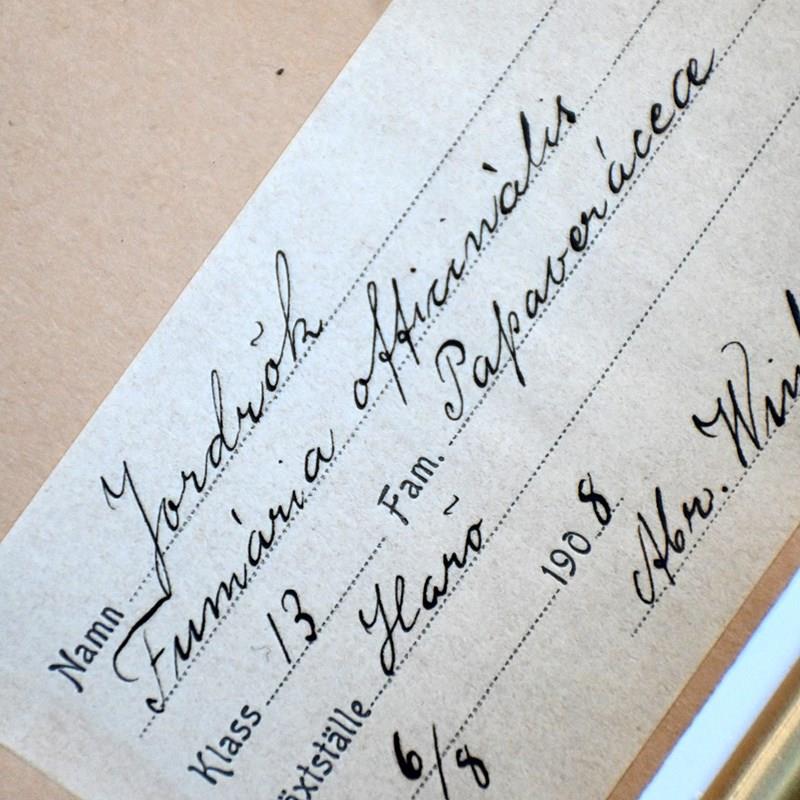 Namn Jordrök
Fumária officinàlis
Klass 13 Fam. Papaveráceæ
växtställe Harö
6/8 1908
Abr. Win